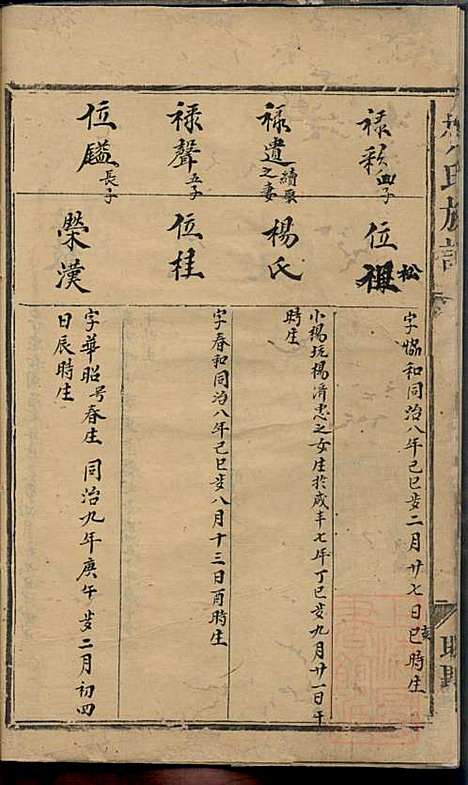 氏族譜
祿彩四子
位祿
松
字協和同治八年己巳歲二月廿七日巳時生
祿遺之妻續聚
楊氏
小楊玩楊清忠之女生於咸丰七年丁巳歲九月廿一日午
時生
祿聲五子
位桂
字春和同治八年己巳歲八月十三日酉時生
位鎰長子
榮漢
字華昭号春生 同治九年庚午歲二月初四
日辰時生